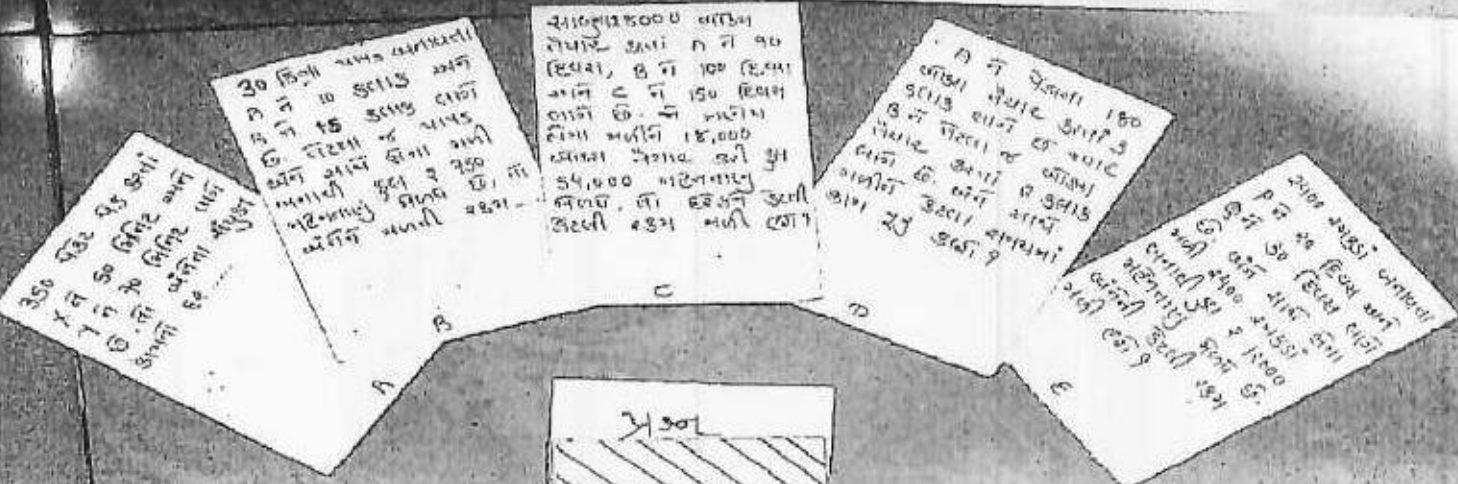 350 પેકેટ પેક કરતાં
X ને 50 મિનિટ અને
Y ને 70 મિનિટ લાગે
છે. તો બંનેના સંયુક્ત
કામનો દર .....
A
30 કિલો પાપડ બનાવતા
A ને 10 કલાક અને
B ને 15 કલાક લાગે
છે. તેટલા જ પાપડ
બંને સાથે મળી
બનાવી કુલ ₹ 750
મહેનતાણું મેળવે છે. તો
બંનેને મળતી રકમ ...
B
સાબુના
તૈયાર કરતાં A ને 90
દિવસ, B ને 100 દિવસ
અને C ને 150 દિવસ
લાગે છે. જો ત્રણેય
મળીને 18,000
તૈયાર કરી કુલ
54,000 મહેનતાણું
મેળવે. તો દરેકને કેટલી
કેટલી રકમ મળી હશે?
C
A ને પેંડાના 180
બોક્સ તૈયાર કરતાં 3
કલાક લાગે છે જ્યારે
B ને તેટલા જ બોક્સ
તૈયાર કરતાં કલાક
લાગે છે. બંને સાથે
મળીને કેટલા સમયમાં
કામ પૂરું કરશે?
D
2400 રમકડાં બનાવવા
A ને 20 દિવસ અને
B ને 30 દિવસ લાગે
છે. બંને સાથે
મળી 2400 રમકડાં
બનાવી કુલ ₹ 12000
મહેનતાણું મેળવે છે.
બંનેને કેટલી રકમ
મળી હશે?
E